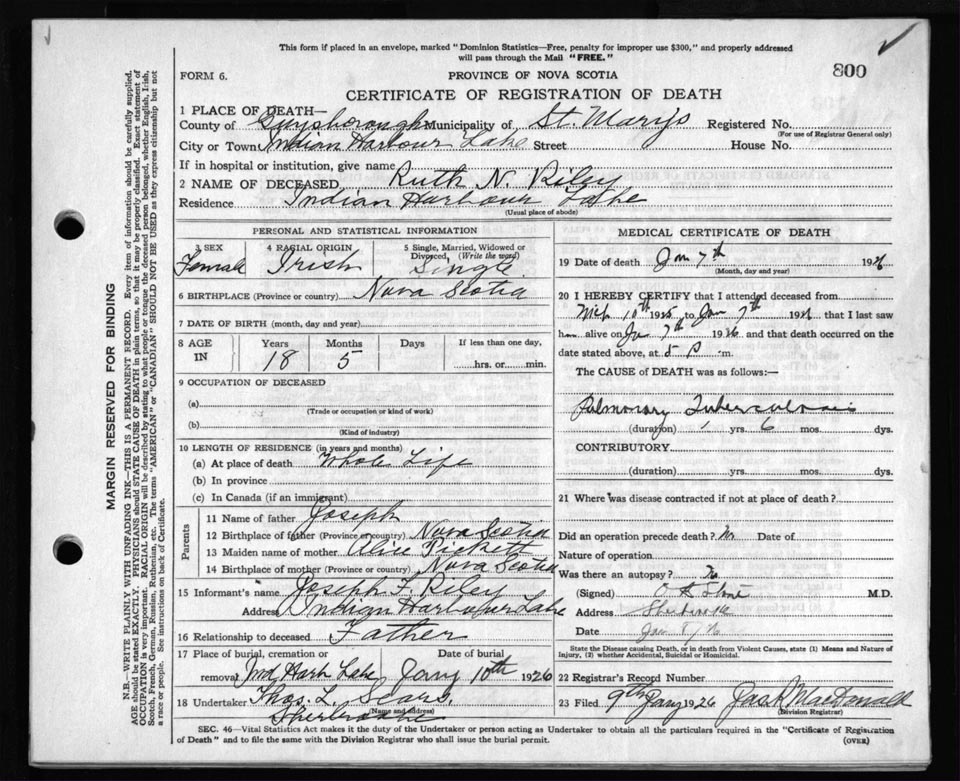 This form if placed in an envelope, marked "Dominion Statistics—Free, penalty for improper use $300," and properly addressed
will pass through the Mail "FREE."
FORM 6.
PROVINCE OF NOVA SCOTIA
800
CERTIFICATE OF REGISTRATION OF DEATH
1 PLACE OF DEATH—
County of Guysborough Municipality of St. Mary's Registered No.
(For use of Registrar General only)
City or Town Indian Harbour Lake Street House No.
If in hospital or institution, give name
2 NAME OF DECEASED Ruth N. Riley
Residence Indian Harbour Lake
(Usual place of abode)
PERSONAL AND STATISTICAL INFORMATION
3 SEX 4 RACIAL ORIGIN 5 Single, Married, Widowed or
Divorced, (Write the word)
Female Irish Single
6 BIRTHPLACE (Province or country) Nova Scotia
7 DATE OF BIRTH (month, day and year)
8 AGE Years Months Days If less than one day,
IN 18 5 hrs. or min.
9 OCCUPATION OF DECEASED
(a)
(Trade or occupation or kind of work)
(b)
(Kind of industry)
10 LENGTH OF RESIDENCE (in years and months)
(a) At place of death Whole Life
(b) In province
(c) In Canada (if an immigrant)
Parents
11 Name of father Joseph
12 Birthplace of father (Province or country) Nova Scotia
13 Maiden name of mother Alice Pickett
14 Birthplace of mother (Province or country) Nova Scotia
15 Informant's name Joseph F. Riley
Address Indian Harbour Lake
16 Relationship to deceased Father
17 Place of burial, cremation or Date of burial
removal Ind Harb Lake Jany 10th 1926
18 Undertaker Thos. L. Sears,
(Name and address)
Sherbrooke
MEDICAL CERTIFICATE OF DEATH
19 Date of death Jan 7th 1926
(Month, day and year)
20 I HEREBY CERTIFY that I attended deceased from
10th 1925 to Jan 7th 1926 that I last saw
h alive on Ja 7th 1926 and that death occurred on the
date stated above, at 5 P m.
The CAUSE of DEATH was as follows:—
Pulmonary Tuberculosis
(duration) 1 yrs. 6 mos. dys.
CONTRIBUTORY
(duration) yrs. mos. dys.
21 Where was disease contracted if not at place of death?
Did an operation precede death? No Date of
Nature of operation
Was there an autopsy? No
(Signed) M.D.
Address Sherbrooke
Date Jan
State the Disease causing Death, or in death from Violent Causes, state (1) Means and Nature of
Injury, (2) whether Accidental, Suicidal or Homicidal.
22 Registrar's Record Number
23 Filed 9th Jany 1926 Jas A MacDonald
(Division Registrar)
SEC. 46—Vital Statistics Act makes it the duty of the Undertaker or person acting as Undertaker to obtain all the particulars required in the "Certificate of Registration
of Death" and to file the same with the Division Registrar who shall issue the burial permit.
(OVER)
MARGIN RESERVED FOR BINDING
N.B.—WRITE PLAINLY WITH UNFADING INK—THIS IS A PERMANENT RECORD. Every item of information should be carefully supplied.
AGE should be stated EXACTLY. PHYSICIANS should STATE CAUSE OF DEATH in plain terms, so that it may be properly classified. Exact statement of
OCCUPATION is very important. RACIAL ORIGIN will be described by stating to what people or tongue the deceased person belonged, whether English, Irish,
Scotch, French, German, Russian, Ruthenian, etc. The terms "AMERICAN" or "CANADIAN" SHOULD NOT BE USED as they express citizenship but not
a race or people. See instructions on back of Certificate.